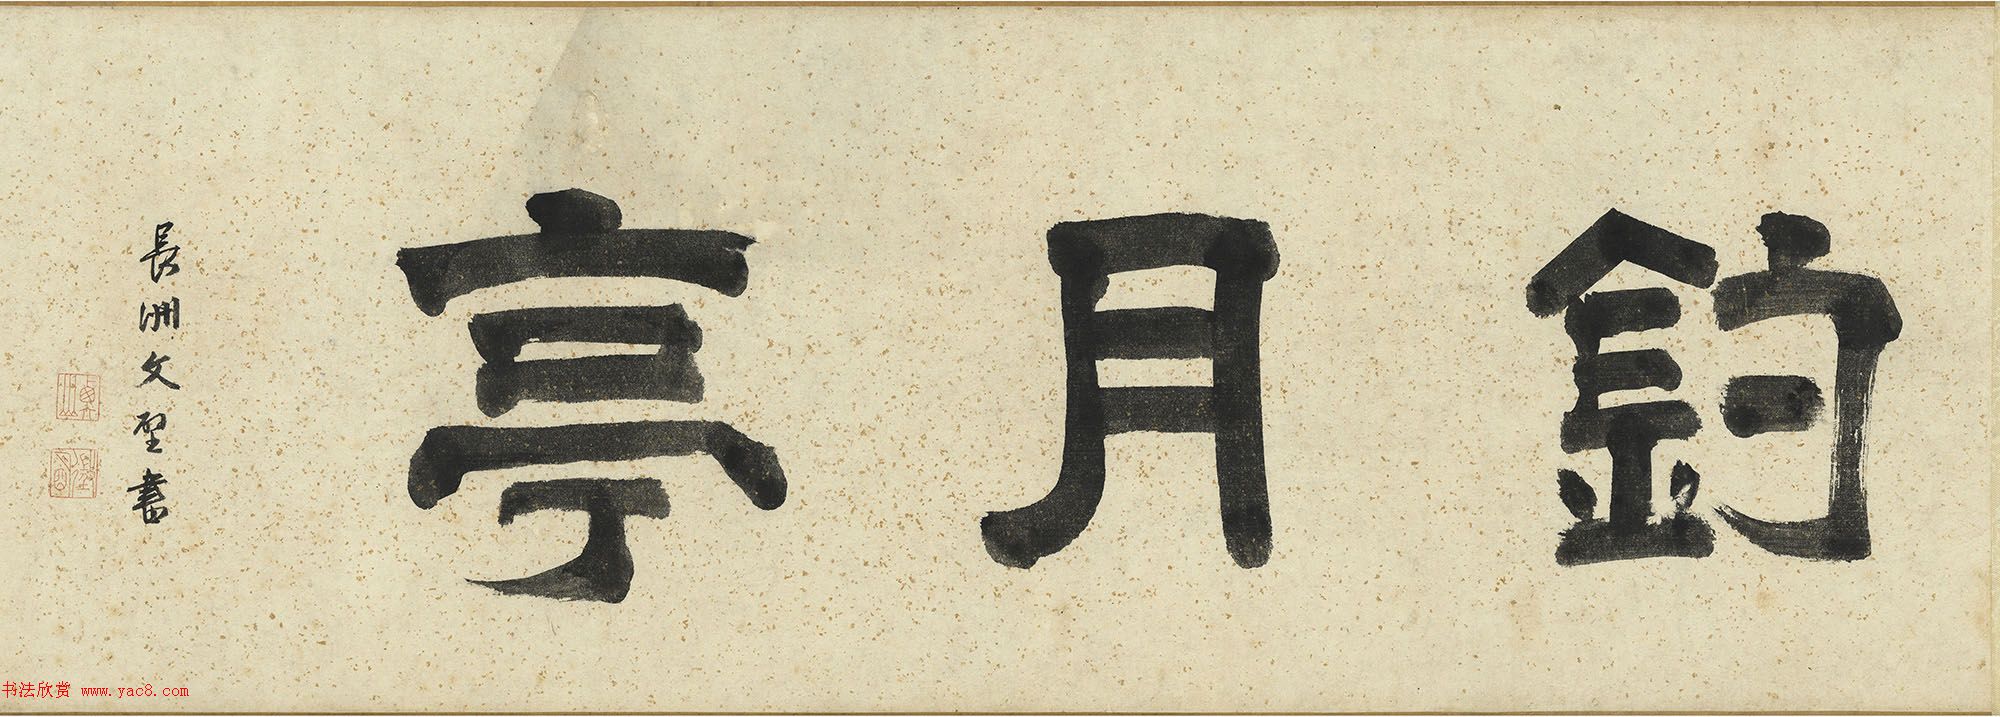 釣月亭
長洲文壁書
书法欣赏 www.yac8.com